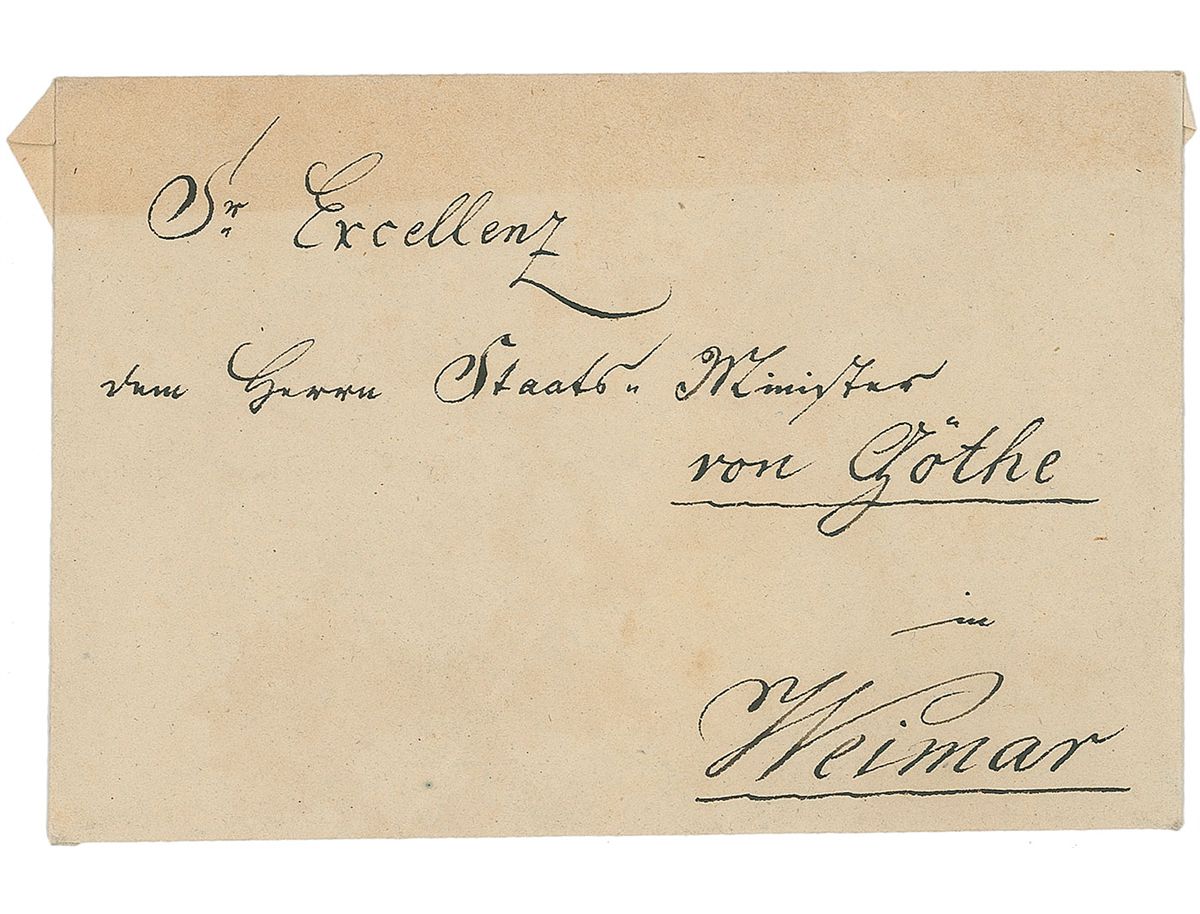 Sr Excellenz
dem Herrn Staats= Minister
von Göthe
in
Weimar